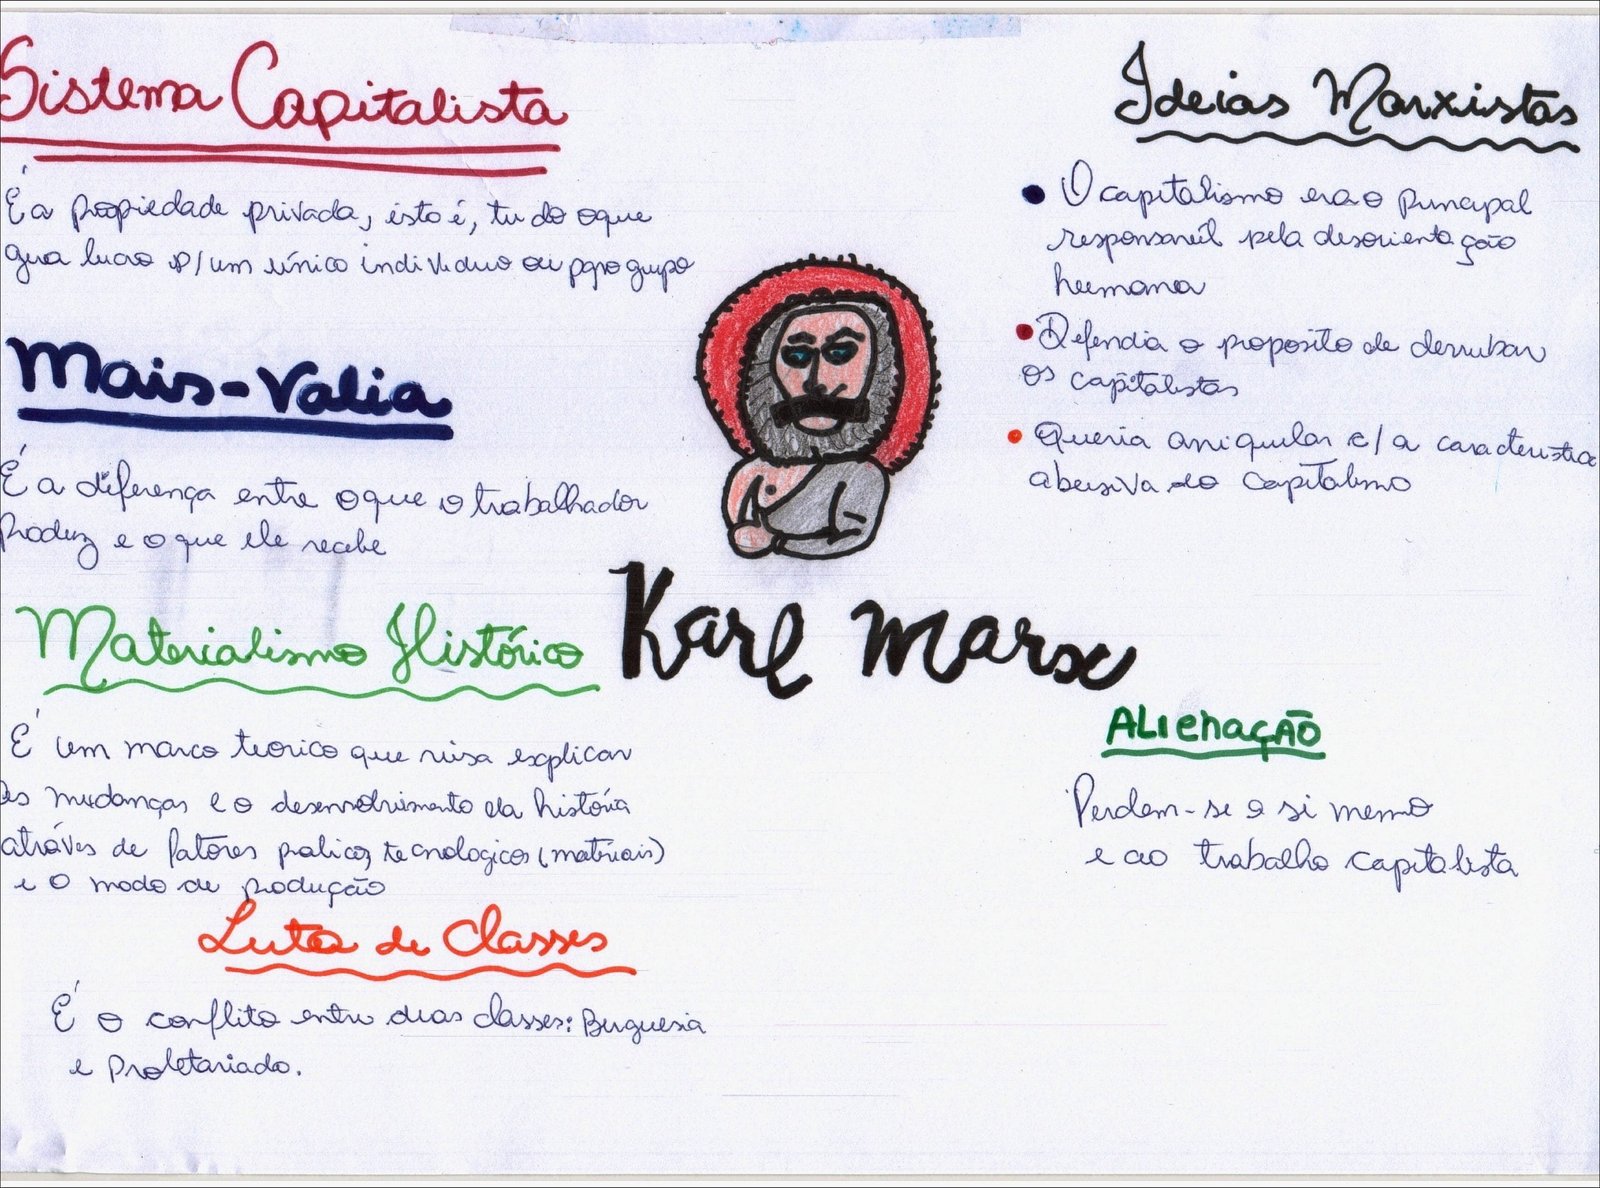 Sistema Capitalista
É a propiedade privada, isto é, tudo o que
gera lucro p/ um único individuo ou p/pro grupo
Mais-Valia
É a diferença entre o que o trabalhador
produz e o que ele recebe
Materialismo Histórico
É um marco teorico que visa explicar
as mudanças e o desenvolvimento da história
atráves de fatores praticos, tecnologicos (matériais)
e o modo de produção
Luta de Classes
É o conflito entre duas classes: Burguesia
e Proletariado.
Karl Marx
Ideias Marxistas
O capitalismo era o principal
responsavél pela desorientação
humana
Defendia o proposito de derrubar
os capitalistas
Queria aniquilar c/ a caracteristica
abusiva do capitalismo
ALIENAÇÃO
Perdem-se a si memo
e ao trabalho capitalista